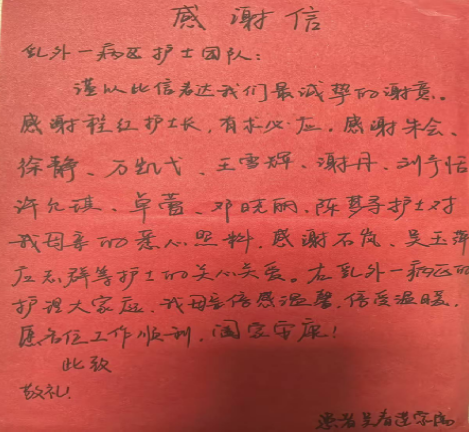 感谢信
乳外一病区护士团队：
谨以此信表达我们最诚挚的谢意。
感谢程红护士长，有求必应，感谢朱会、
徐静、万凯弋、王雪辉、谢丹、刘予恬
许允琪、卓萱、邓晓丽、陈梦寻护士对
我母亲的悉心照料，感谢石岚、吴玉萍
应志群等护士的关心关爱。在乳外一病区的
护理大家庭，我母亲倍感温馨，倍受温暖，
愿各位工作顺利，阖家安康！
此致
敬礼！
患者吴春莲家属